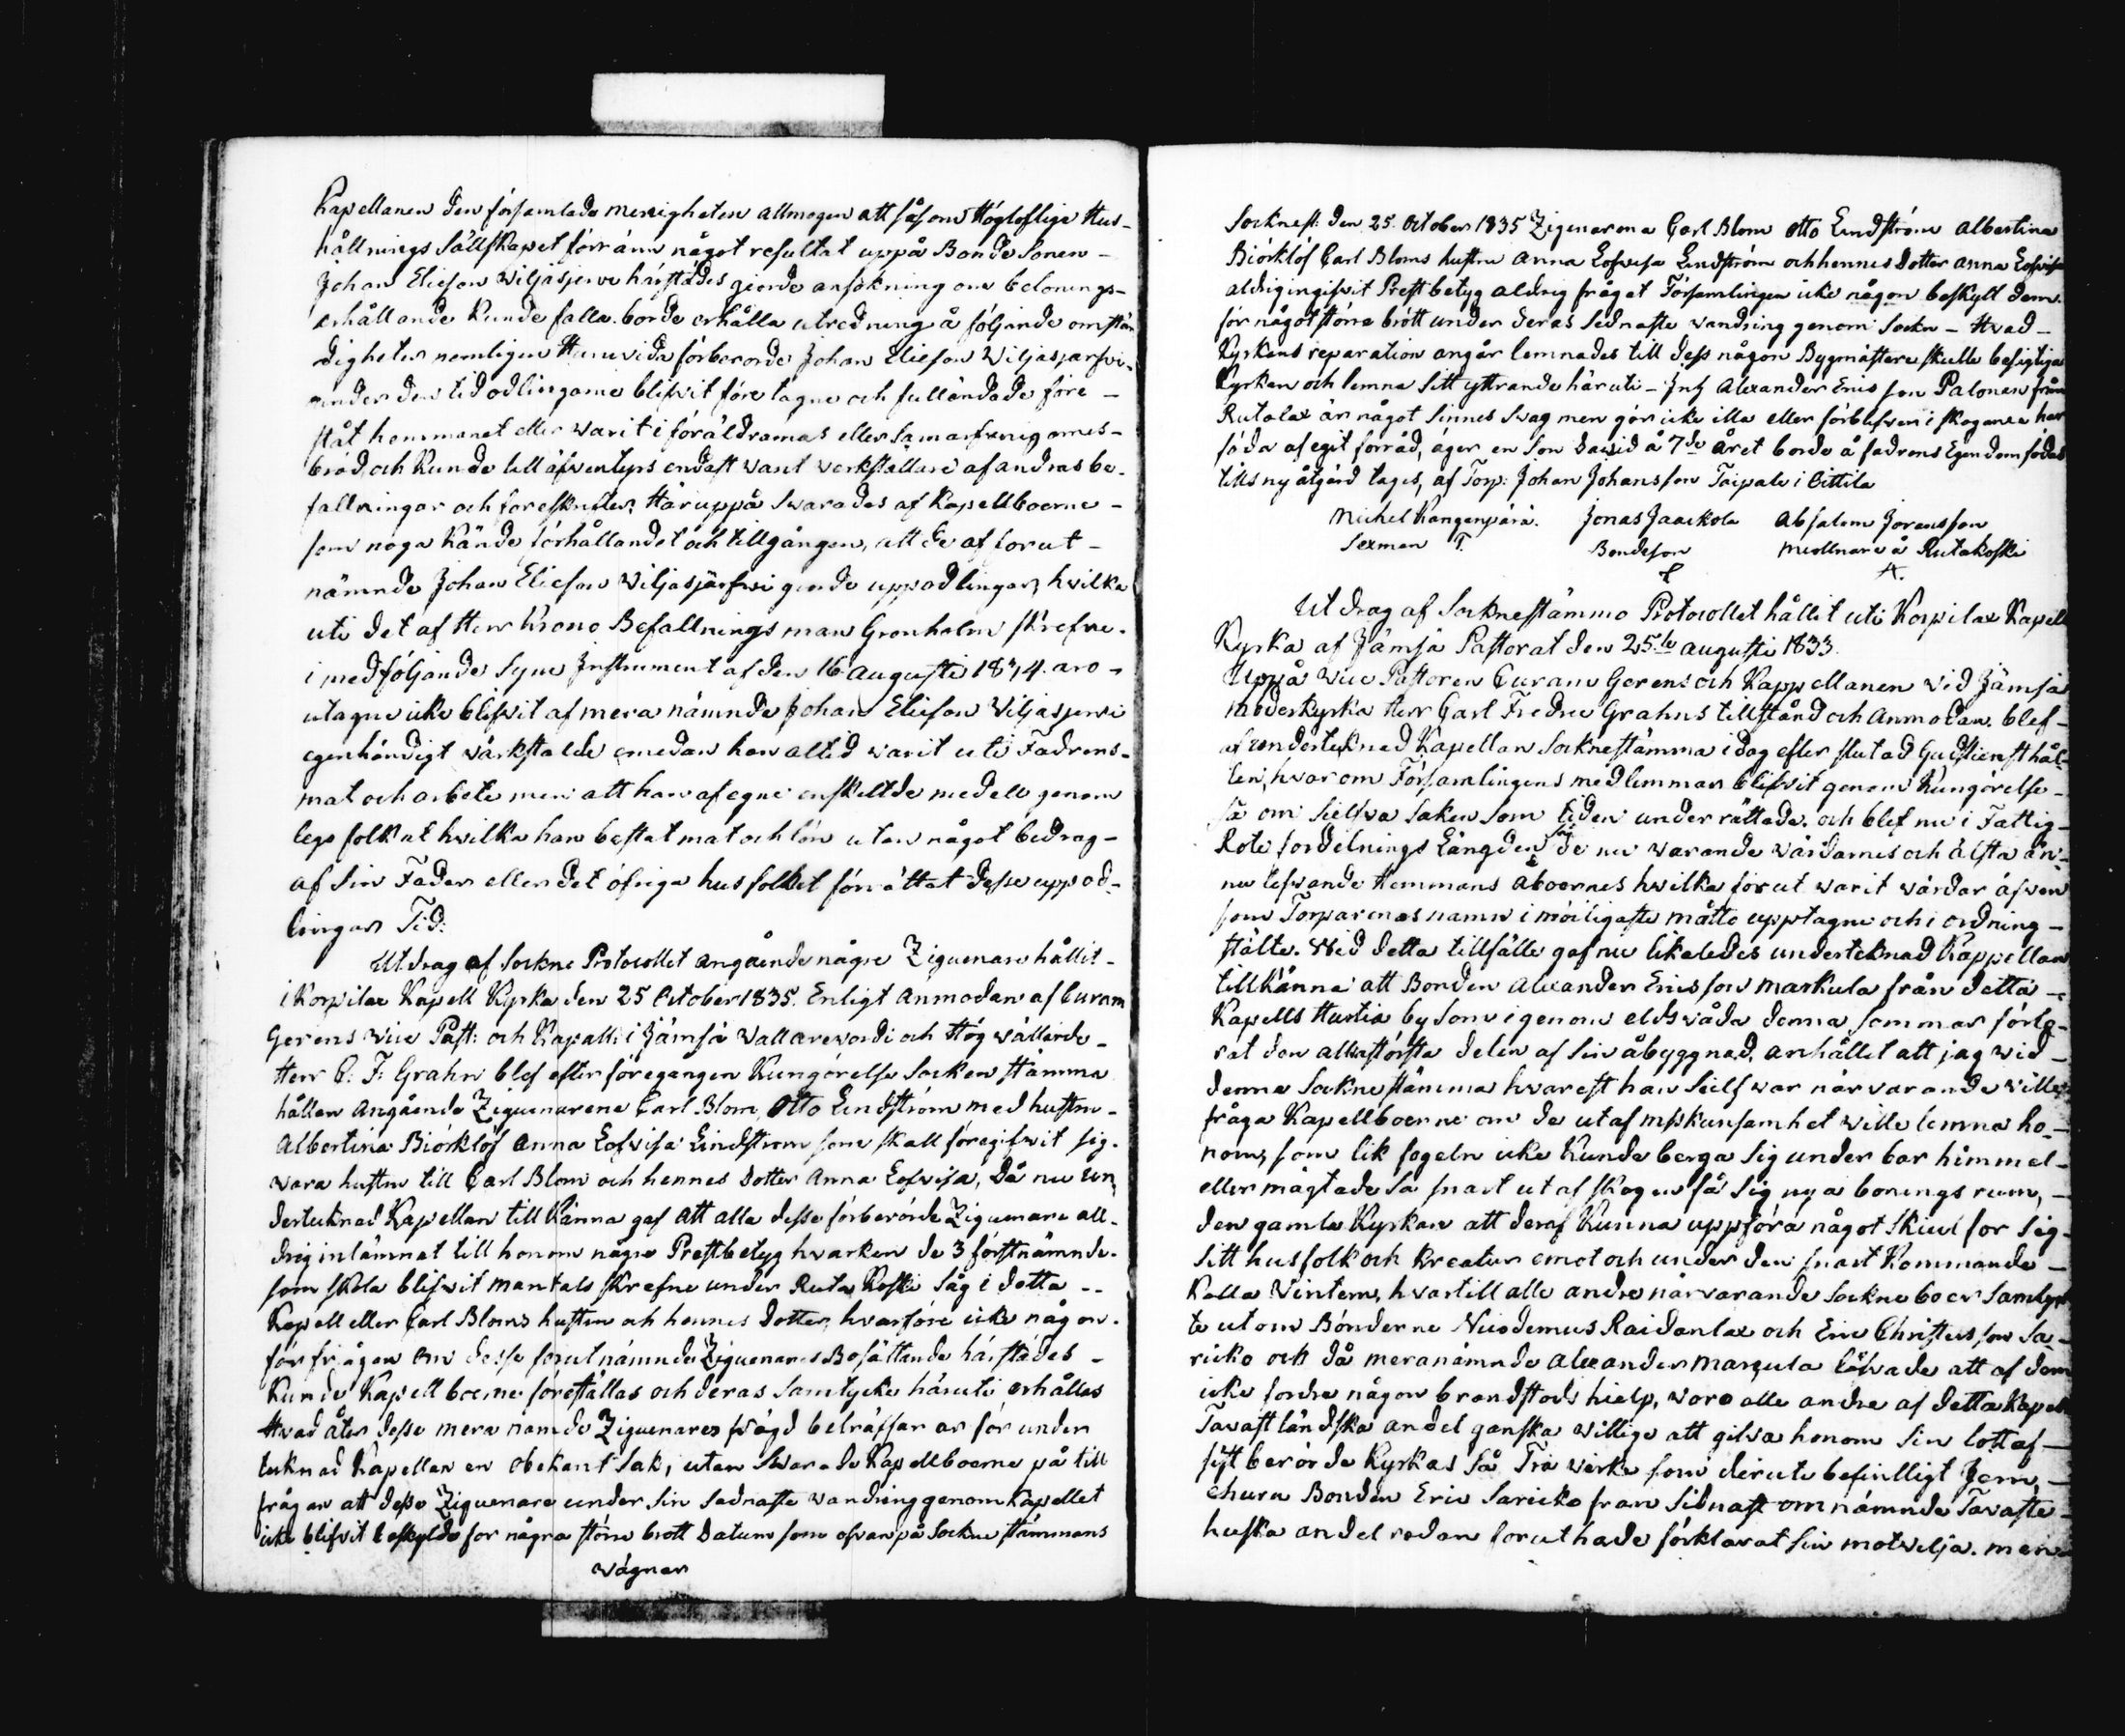 Kapellanen den församlade menigheten allmogen att såsom Högloflige Hus-
hållnings Sällskapet förränn något resultat uppå Bonde Sonen -
Johan Eliesson Wiljasjerve härstädes giorde ansökning om belonings-
erhållande kunde falla. borde erhålla utredning å följande omstän
digheter nemligen Huruvida förberorde Johan Elieson Wiljasjarfvi.
under den tid odlingarne blifvit före tagne och fulländade före -
ståt hemmanet eller warit i föräldrarnas eller
bröd, och kunde till äfventyrs endast warit verkställare af andras be-
fallningar och foreskrifter, Häruppå Swarades af Kapellboerne -
som noga kände förhållandet och tillgången, att de af forut -
nämnde Johan Elieson Wiljasjärfwi giorde uppodlingar, hvilka
uti det af Herr Krono Befallningsman Gronholm skrefne.
i medföljande Syne Instrument af den 16 Augusti 1834. aro -
utagne icke blifvit af mera nämnde Johan Elieson Wiljasjerwi
egenhändigt värkstälde emedan han altid warit uti Fadrens-
mat och arbete men att han af egne enskildte medell genom
lego folk at hvilka han bestat mat och lön utan något bedrag -
af Sin Fader eller det öfriga husfolket förrättat desse uppod-
lingar Tid:
Utdrag af Sockne Protocollet angående några Ziguenare hållit -
i Korpilax Kapell Kyrka den 25 October 1835. Enligt Anmodan af Curam
Gerens Vice Past: och Kapell: i Jämsä Wallärevordi och Hög wällärde -
Herr C: F: Grahn blef efter föregången Kungörelse Socken Stämma
hållen Angående Ziguenarene Carl Blom, Otto Lindström med hustru -
Albertina Biörklöf Anna Lofvisa Lindstrom som skall föregifwit sig.
wara hustru till Carl Blom och hennes Dotter Anna Lofvisa, Då nu un
dertecknad Kapellan till Känna gaf att alla desse förberörde Ziguenare all-
drig inlämnat till honom några Prestbetyg hvarken de 3 förstnämnde.
som skola blifvit Mantals skrefne under Ruta Koski Såg i detta --
Kapell eller Carl Bloms hustru och hennes Dotter, hvarföre icke någon.
förfrågan om desse forutnämnde Ziguenares Bosättande härstädes -
Kunde Kapellboerne föreställas och deras Samtycke häruti erhållas
Hvad åter desse mera namde Ziguenares frägd beträffar ar för under
tecknad Kapellan en obekant Sak, utan Swarade Kapellboerne på till
frågan att desse Ziguenare under Sin sednaste wandring genom Kapellet
icke blifvit beskylde for några större brott Datum som ofvan på Sockne stämmans
wägnar
Socknest: den 25. October 1835 Zigenarena Carl Blom Otto Lindström Albertina
Biörklöf Carl Bloms hustru Anna Lofvisa Lindström och hennes Dotter Anna Lofvisa
aldrig ingifvit Prestbetyg aldrig fråget Församlingen icke någon beskyllt dem.
för något större brött under deras sednaste wandring genom Sockn - Hvad -
Kyrkans reparation angår lemnades till dess någon Bygmästare skulle besigtiga
Kyrkan och lemna Sitt yttrande häruti - Inh Alexander Ericsson Palonen från
Rutalax är något Sinnes Swag men gör icke illa eller förblifver i skogarna har
föda af eget förråd, äger en Son David å 7de året borde å fadrens Egendom födas
tills ny åtgärd tages, af Torp: Johan Johansson Taipale i Oittila
Michel Kangenpärä. Jonas Jaackola Absalom Joransson
Sexman T. Bondeson Miollnare å Rutakoski
Utdrag af Socknestämmo Protocollet hållit uti Korpilax Kapell
Kyrka af Jämsä Pastorat den 25.te Augusti 1833.
Uppå Vice Pastoren Curam Gerens och Kappellanen vid Jämsä
moderkyrka Herr Carl Fredric Grahns tillstånd och Anmodan. blef -
af undertecknad Kapellan Socknestämma idag efter slutad Gudstienst hål-
len, hvarom Församlingens medlemmar blifvit genom Kungörelse -
så om sielfva Saken som tiden underrättade. och blef nu i Fattig-
Rote fordelnings Längden så de nu warande wårdarnes och älsta än-
nu lefvande Hemmans Aboernes hwilka förut warit wärdar äfven
som Torparenas namn i möiligaste måtto upptagne och i ordning -
stälte. Wid detta tillfälle gaf nu likaledes undertecknad Kappellan
tillkänna att Bonden Alexander Ericsson Markula från detta -
Kapells Hurtia by som igenom eldsvåda denna Sommar förlo-
rat den allrastörsta delen af Sin åbyggnad, anhållet att jag wid -
denna Socknestämma hvarest han Sielf war närvarande ville
fråga Kapellboerne om de utaf miskunsamhet wille lemna ho-
nom, som lik fogeln icke kunde berga Sig under bar himmel -
eller mägtade så snart ut af skogen få Sig nya bonings rum, -
den gamla Kyrkan att deraf kunna uppföra något Skiul för Sig -
Sitt husfolk och kreatur emot och under den snart kommande -
kalla Wintern, hvartill alle andre närvarande Sockneboer Samtyck
te utom Bönderne Nicodemus Raidanlax och Eric Christersson Sa-
ricko och då meranämnde Alexander Marcula låfvade att af dem
icke fordra någon brandstods hielp, woro alle andre af detta Kapells
Tavastländska andel ganska willige att gifva honom Sin lott af -
sist berörde Kyrkas så Trä wirke som deruti befintligt Jern, -
churu Bonden Eric Saricko fran Sidnast omnämnde Tavaste -
huska andel redan forut hade förklarat Sin motvilja. men